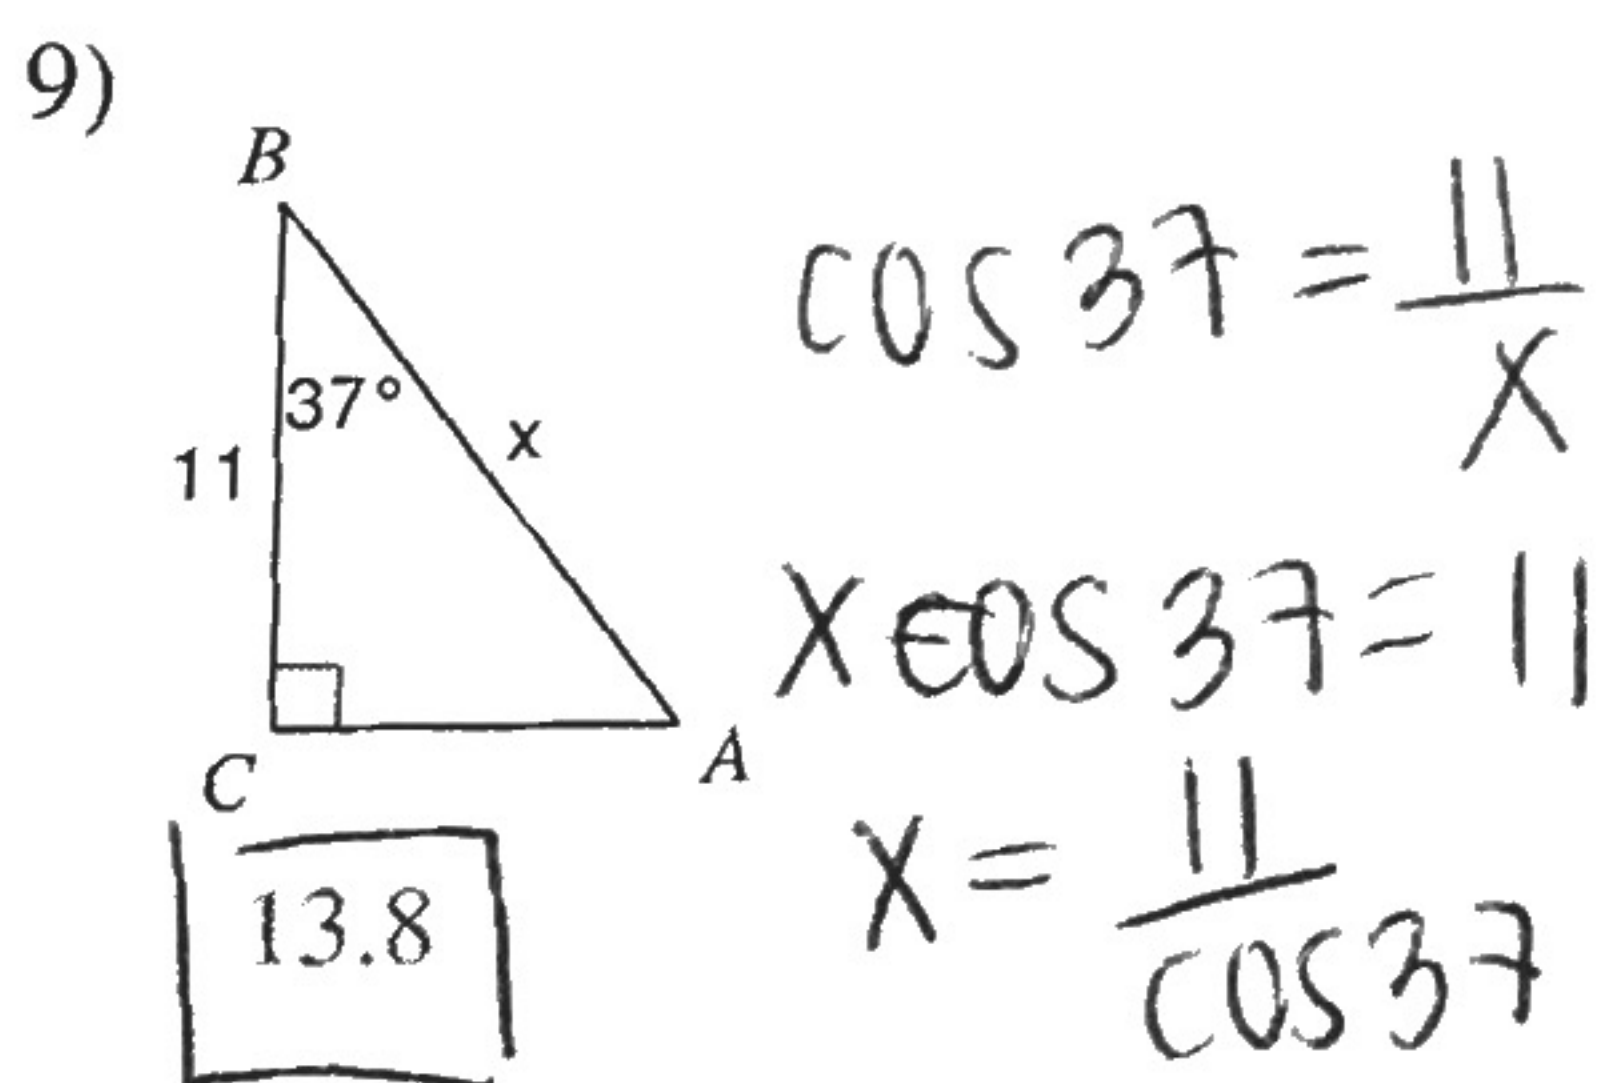 9)
B
37°
11
x
C
A
13.8
cos 37 = 11/x
x cos 37 = 11
x = 11/cos 37